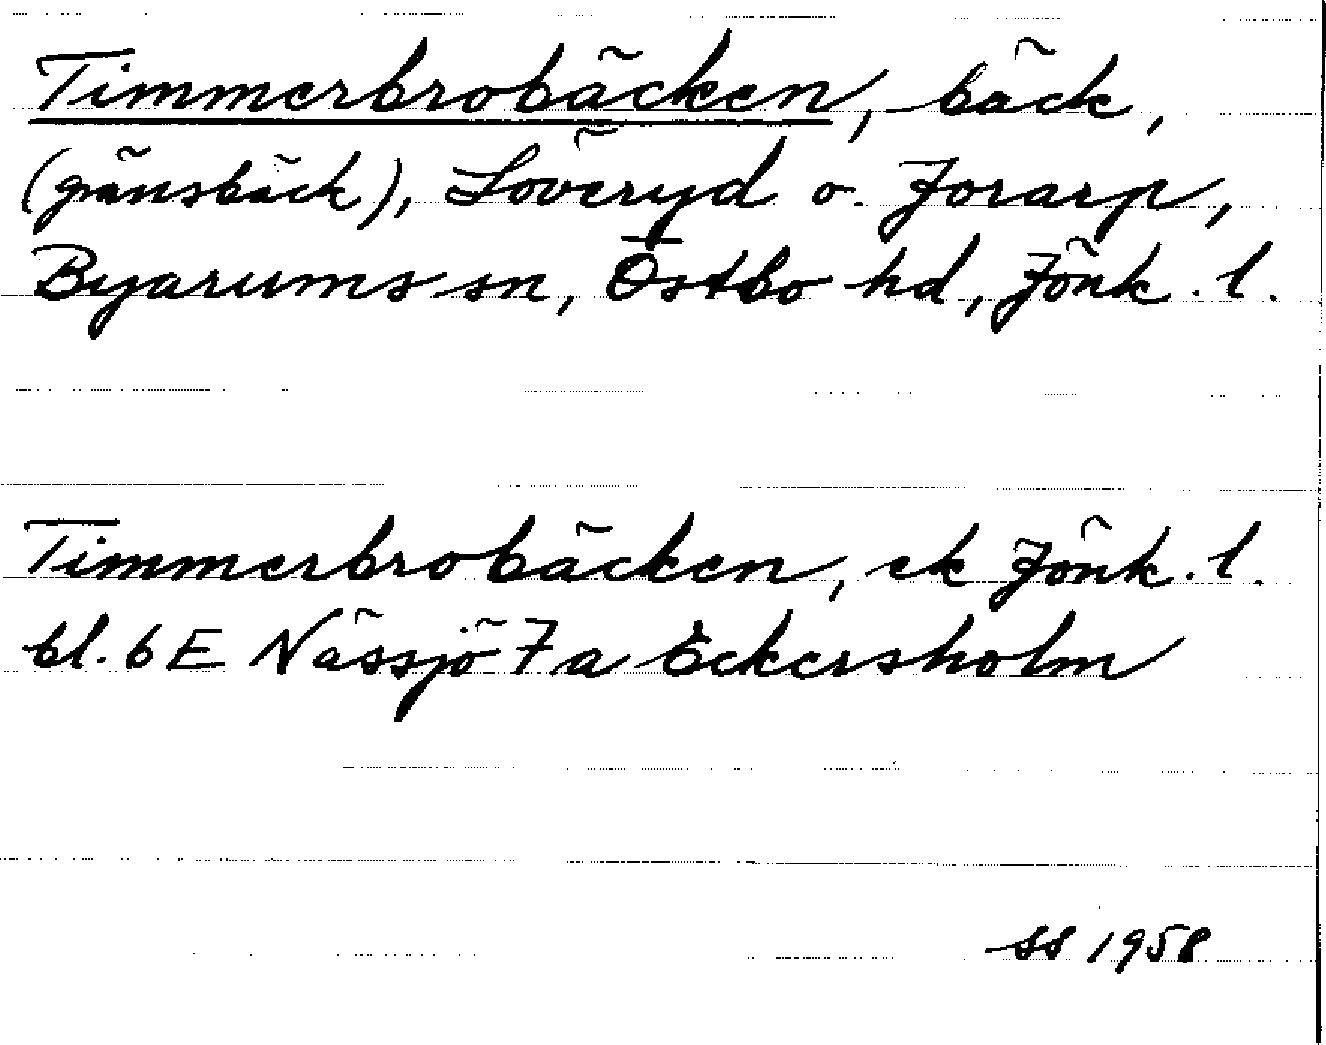 Timmerbrobäcken, bäck,
(gränsbäck), Löveryd o. Jorarp,
Byarums sn, Östbo hd, Jönk. l.
Timmerbrobäcken, ek Jönk. l.
bl. 6 E Nässjö 7 a Eckersholm
SS 1958